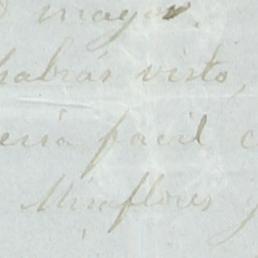 mayor.
habrás visto,
ería facil c
Miraflores y